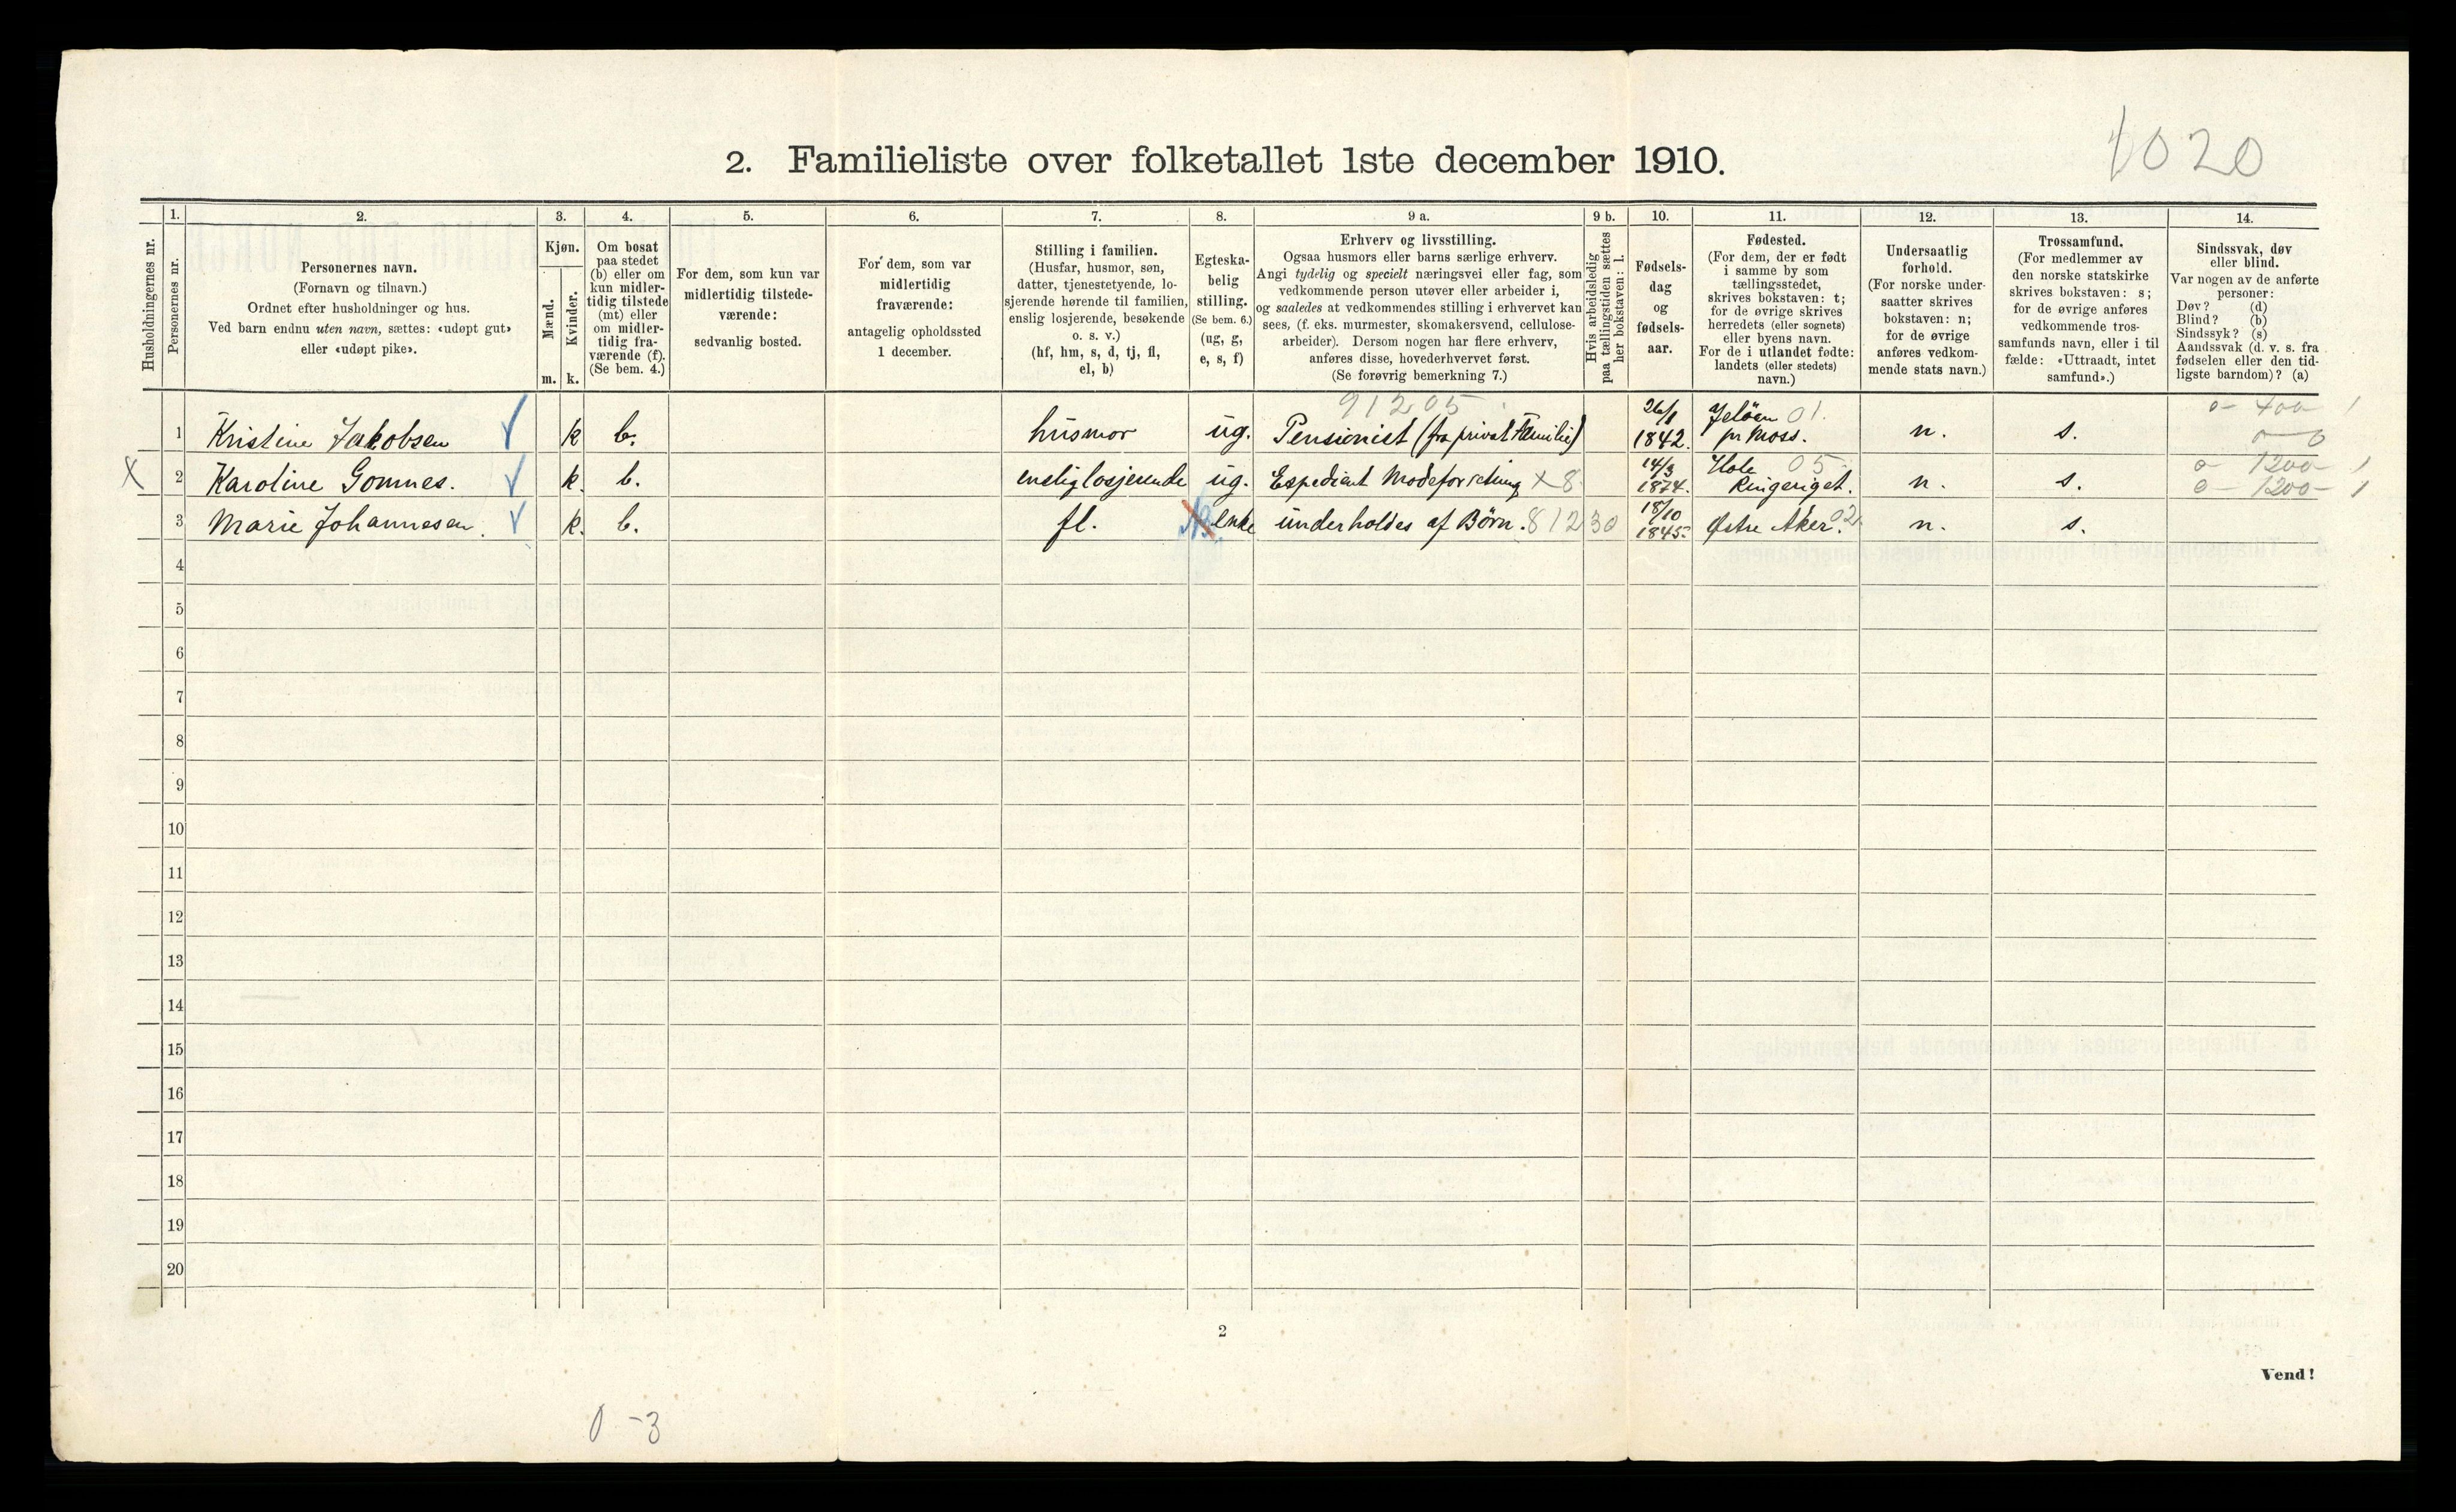 1020
2. Familieliste over folketallet 1ste december 1910.
Husholdningernes nr.
1.
Personernes nr.
2.
Personernes navn.
(Fornavn og tilnavn.)
Ordnet efter husholdninger og hus.
Ved barn endnu uten navn, sættes: «udøpt gut»
eller «udøpt pike».
3.
Kjøn.
Mænd.
Kvinder.
m. k.
4.
Om bosat
paa stedet
(b) eller om
kun midler-
tidig tilstede
(mt) eller
om midler-
tidig fra-
værende (f).
(Se bem. 4.)
5.
For dem, som kun var
midlertidig tilstede-
værende:
sedvanlig bosted.
6.
For dem, som var
midlertidig
fraværende:
antagelig opholdssted
1 december.
7.
Stilling i familien.
(Husfar, husmor, søn,
datter, tjenestetyende, lo-
sjerende hørende til familien,
enslig losjerende, besøkende
o. s. v.)
(hf, hm, s, d, tj, fl,
el, b)
8.
Egteska-
belig
stilling.
(Se bem. 6.)
(ug, g,
e, s, f)
9 a.
Erhverv og livsstilling.
Ogsaa husmors eller barns særlige erhverv.
Angi tydelig og specielt næringsvei eller fag, som
vedkommende person utøver eller arbeider i,
og saaledes at vedkommendes stilling i erhvervet kan
sees, (f. eks. murmester, skomakersvend, cellulose-
arbeider). Dersom nogen har flere erhverv,
anføres disse, hovederhvervet først.
(Se forøvrig bemerkning 7.)
9 b.
Hvis arbeidsledig
paa tællingstiden sættes
her bokstaven: l.
10.
Fødsels-
dag
og
fødsels-
aar.
11.
Fødested.
(For dem, der er født
i samme by som
tællingsstedet,
skrives bokstaven: t;
for de øvrige skrives
herredets (eller sognets)
eller byens navn.
For de i utlandet fødte:
landets (eller stedets)
navn.)
12.
Undersaatlig
forhold.
(For norske under-
saatter skrives
bokstaven: n;
for de øvrige
anføres vedkom-
mende stats navn.)
13.
Trossamfund.
(For medlemmer av
den norske statskirke
skrives bokstaven: s;
for de øvrige anføres
vedkommende tros-
samfunds navn, eller i til
fælde: «Uttraadt, intet
samfund».)
14.
Sindssvak, døv
eller blind.
Var nogen av de anførte
personer:
Døv? (d)
Blind? (b)
Sindssyk? (s)
Aandssvak (d. v. s. fra
fødselen eller den tid-
ligste barndom)? (a)
91205 26/1 Jeløen 01. 0 - 400 - 1
1 Kristine Jakobsen k b. husmor ug. Pensionist (fra privat Familie) 1842. pr Moss. n. s. 0 - 0
14/3 Hole 05 0 - 1200 - 1
X 2 Karoline Gomnes. k. b. enslig losjerende ug. Expedient Modeforretning X 8 1874. Ringeriget. n. s. 0 - 1200 - 1
18/10
3 Marie Johannesen. k. b. fl. enke underholdes af Børn. 812 30 1845 Østre Aker. 02 n. s.
4
5
6
7
8
9
10
11
12
13
14
15
16
17
18
19
20
2
Vend!
0 - 3